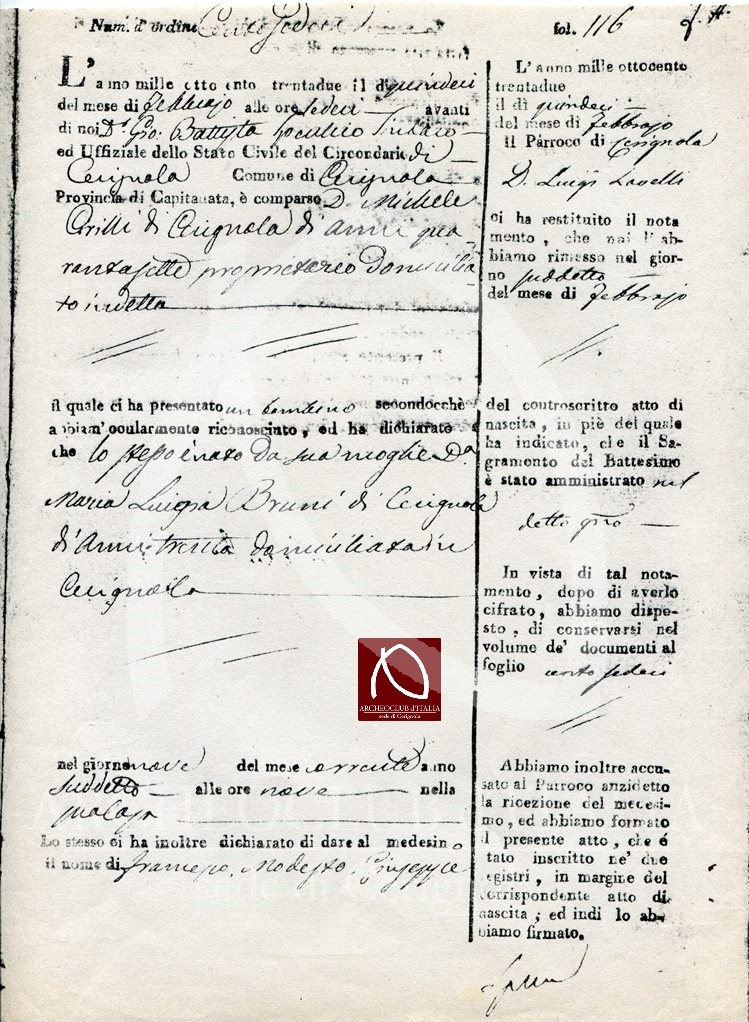 Num. d'ordine Cento Sedeci
fol. 116
L'anno mille otto ento trentadue il dì quindeci
del mese di Febbrajo alle ore sedeci avanti
di noi D. Gio. Battista Sindaco
ed Uffiziale dello Stato Civile del Circondario di
Cerignola Comune di Cerignola
Provincia di Capitanata, è comparso D. Michele
Cirilli di Cerignola di anni qua
rantasette proprietario domicilia
to in detta
il quale ci ha presentato un bambino secondocchè
abbiam' ocularmente riconosciuto, ed ha dichiarato
che lo stesso è nato da sua moglie Da
Maria Luigia Bruni di Cerignola
di Anni trenta domiciliata in
Cerignola
nel giorno nove del mese corrente anno
suddetto alle ore nove nella
Lo stesso ci ha inoltre dichiarato di dare al medesimo
il nome di Francesco, Modesto, Giuseppe
L'anno mille ottocento
trentadue
il dì quindeci
del mese di Febbrajo
il Parroco di Cerignola
D. Luigi
ci ha restituito il nota
mento, che noi l'ab-
biamo rimesso nel gior-
no suddetto
del mese di Febbrajo
del controscritto atto di
nascita, in piè del quale
ha indicato, che il Sa-
gramento del Battesimo
è stato amministrato nel
detto gno
In vista di tal nota-
mento, dopo di averlo
cifrato, abbiamo dispo-
sto, di conservarsi nel
volume de' documenti al
foglio cento sedeci
Abbiamo inoltre accu-
sato al Parroco anzidetto
la ricezione del medesi-
mo, ed abbiamo formato
il presente atto, che é
tato inscritto ne' due
egistri, in margine del
corrispondente atto di
nascita; ed indi lo ab-
biamo firmato.
ARCHEOCLUB D'ITALIA
sede di Cerignola